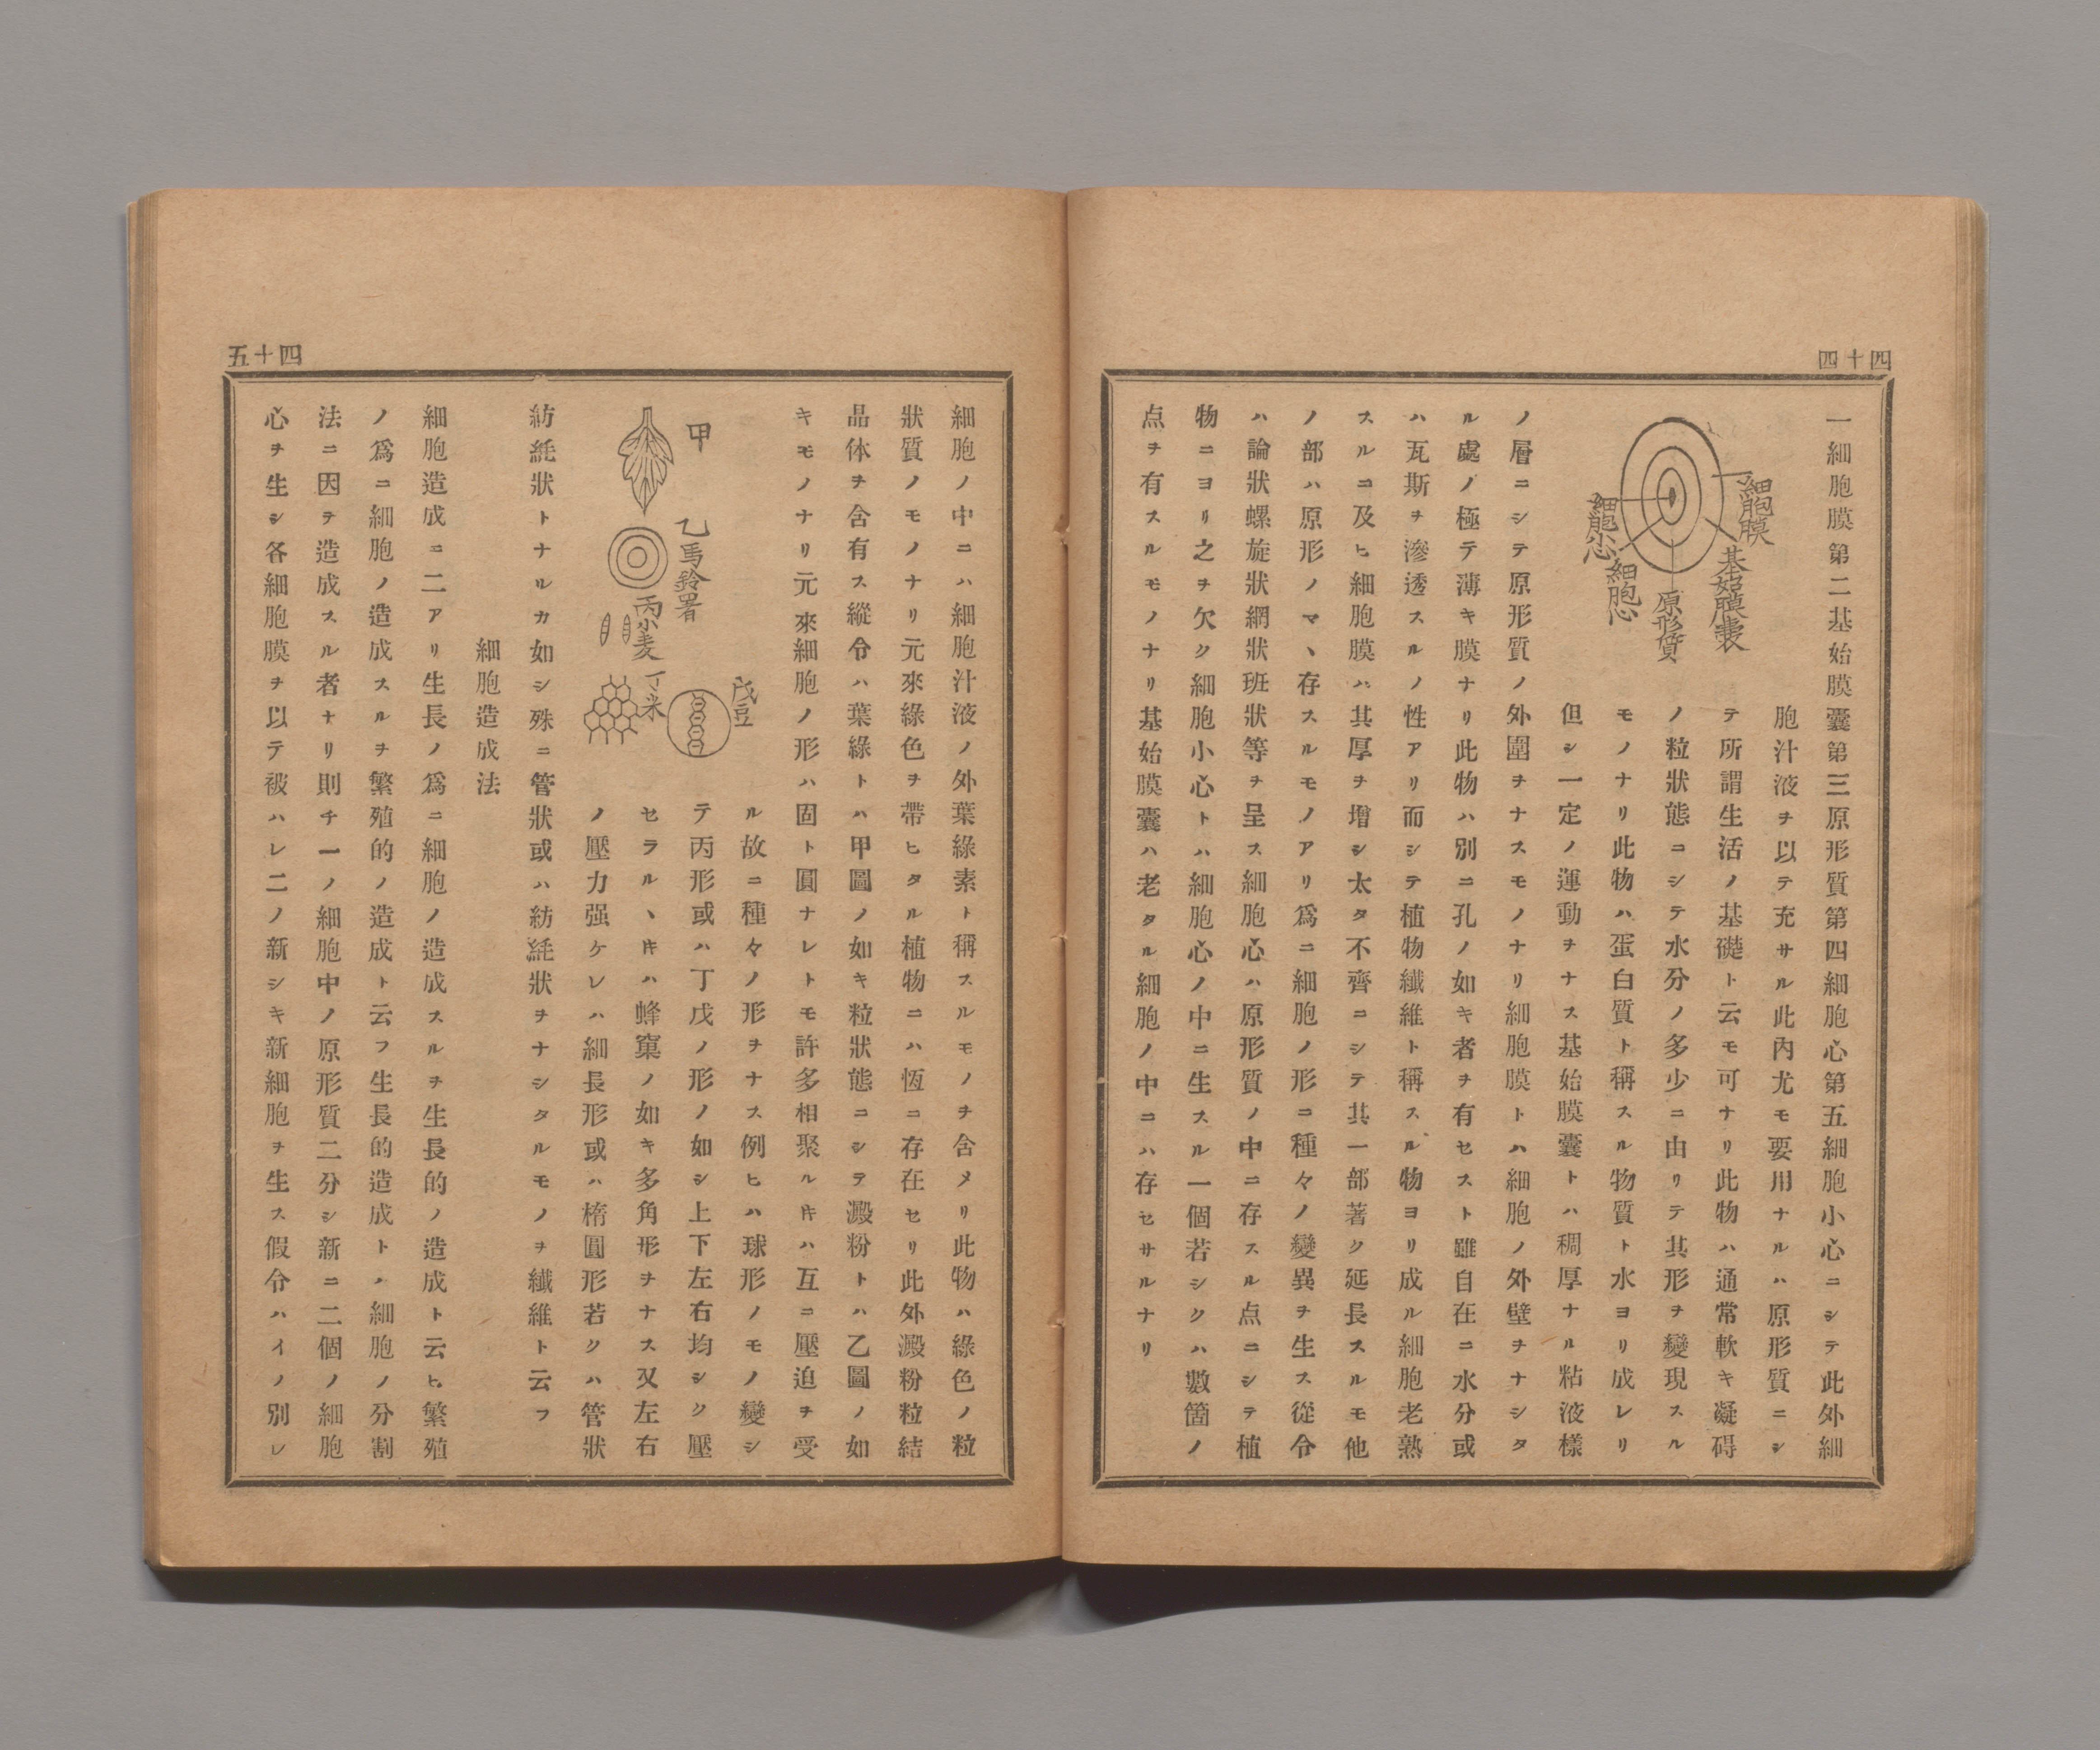 四十四
一細胞膜第二基始膜囊第三原形質第四細胞心第五細胞小心ニシテ此外細
細胞膜
基始膜囊
原形質
細胞心
細胞小心
胞汁液ヲ以テ充サル此內尤モ要用ナルハ原形質ニシ
テ所謂生活ノ基礎ト云モ可ナリ此物ハ通常軟キ凝碍
ノ粒狀態ニシテ水分ノ多少ニ由リテ其形ヲ變現スル
モノナリ此物ハ蛋白質ト稱スル物質ト水ヨリ成レリ
但シ一定ノ運動ヲナス基始膜囊トハ稠厚ナル粘液樣
ノ層ニシテ原形質ノ外圍ヲナスモノナリ細胞膜トハ細胞ノ外壁ヲナシタ
ル處ノ極テ薄キ膜ナリ此物ハ別ニ孔ノ如キ者ヲ有セスト雖自在ニ水分或
ハ瓦斯ヲ滲透スルノ性アリ而シテ植物纖維ト稱スル物ヨリ成ル細胞老熟
スルヿ及ヒ細胞膜ハ其厚ヲ增シ太タ不齊ニシテ其一部著ク延長スルモ他
ノ部ハ原形ノマヽ存スルモノアリ爲ニ細胞ノ形ニ種々ノ變異ヲ生ス從令
ハ論狀螺旋狀網狀班狀等ヲ呈ス細胞心ハ原形質ノ中ニ存スル点ニシテ植
物ニヨリ之ヲ欠ク細胞小心トハ細胞心ノ中ニ生スル一個若シクハ數箇ノ
点ヲ有スルモノナリ基始膜囊ハ老タル細胞ノ中ニハ存セサルナリ
四十五
細胞ノ中ニハ細胞汁液ノ外葉綠素ト稱スルモノヲ含メリ此物ハ綠色ノ粒
狀質ノモノナリ元來綠色ヲ帶ヒタル植物ニハ恆ニ存在セリ此外澱粉粒結
晶体ヲ含有ス縱令ハ葉綠トハ甲圖ノ如キ粒狀態ニシテ澱粉トハ乙圖ノ如
キモノナリ元來細胞ノ形ハ固ト圓ナレトモ許多相聚ルキハ互ニ壓迫ヲ受
甲
乙馬鈴署
丙小麦
丁米
戊豆
ル故ニ種々ノ形ヲナス例ヒハ球形ノモノ變シ
テ丙形或ハ丁戊ノ形ノ如シ上下左右均シク壓
セラルヽキハ蜂窠ノ如キ多角形ヲナス又左右
ノ壓力强ケレハ細長形或ハ楕圓形若クハ管狀
紡紝狀トナルカ如シ殊ニ管狀或ハ紡紝狀ヲナシタルモノヲ纖維ト云フ
細胞造成法
細胞造成ニ二アリ生長ノ爲ニ細胞ノ造成スルヲ生長的ノ造成ト云ヒ繁殖
ノ爲ニ細胞ノ造成スルヲ繁殖的ノ造成ト云フ生長的造成トハ細胞ノ分割
法ニ因テ造成スル者ナリ則チ一ノ細胞中ノ原形質二分シ新ニ二個ノ細胞
心ヲ生シ各細胞膜ヲ以テ被ハレ二ノ新シキ新細胞ヲ生ス假令ハイノ別レ